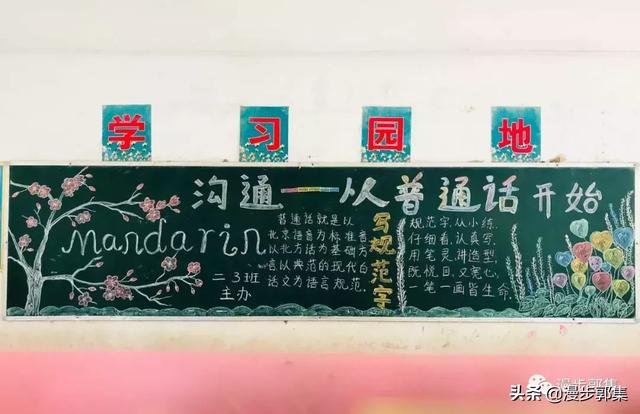 学习园地
沟通—从普通话开始
Mandarin
普通话就是以
北京语音为标准音
以北方话为基础方
言以典范的现代白
话文为语言规范.
二3班
主办
写规范字
规范字,从小练.
仔细看,认真写.
用笔灵,讲造型.
既悦目,又宽心.
一笔一画皆生命.
漫步郭集
头条@漫步郭集